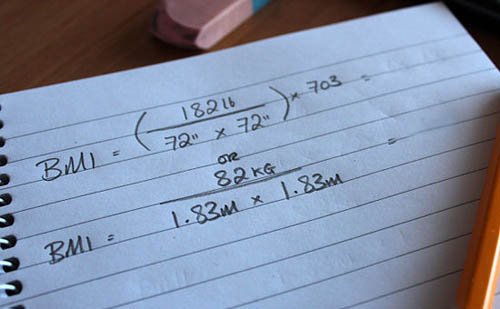 BMI = (182 lb / 72" x 72") x 703 =
OR
BMI = 82 KG / 1.83m x 1.83m =